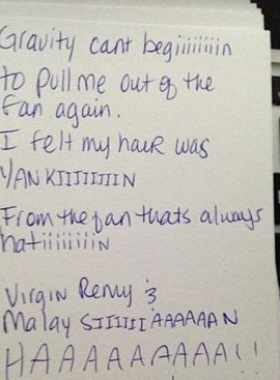 Gravity cant begiiiiiiiin
to pull me out of the
fan again.
I felt my haiR was
YANKIIIIIIIIN
From the fan thats always
hatiiiiiiiiN
Virgin Remy is
Malay SIIIIIIAAAAAAN
HAAAAAAAAA!!